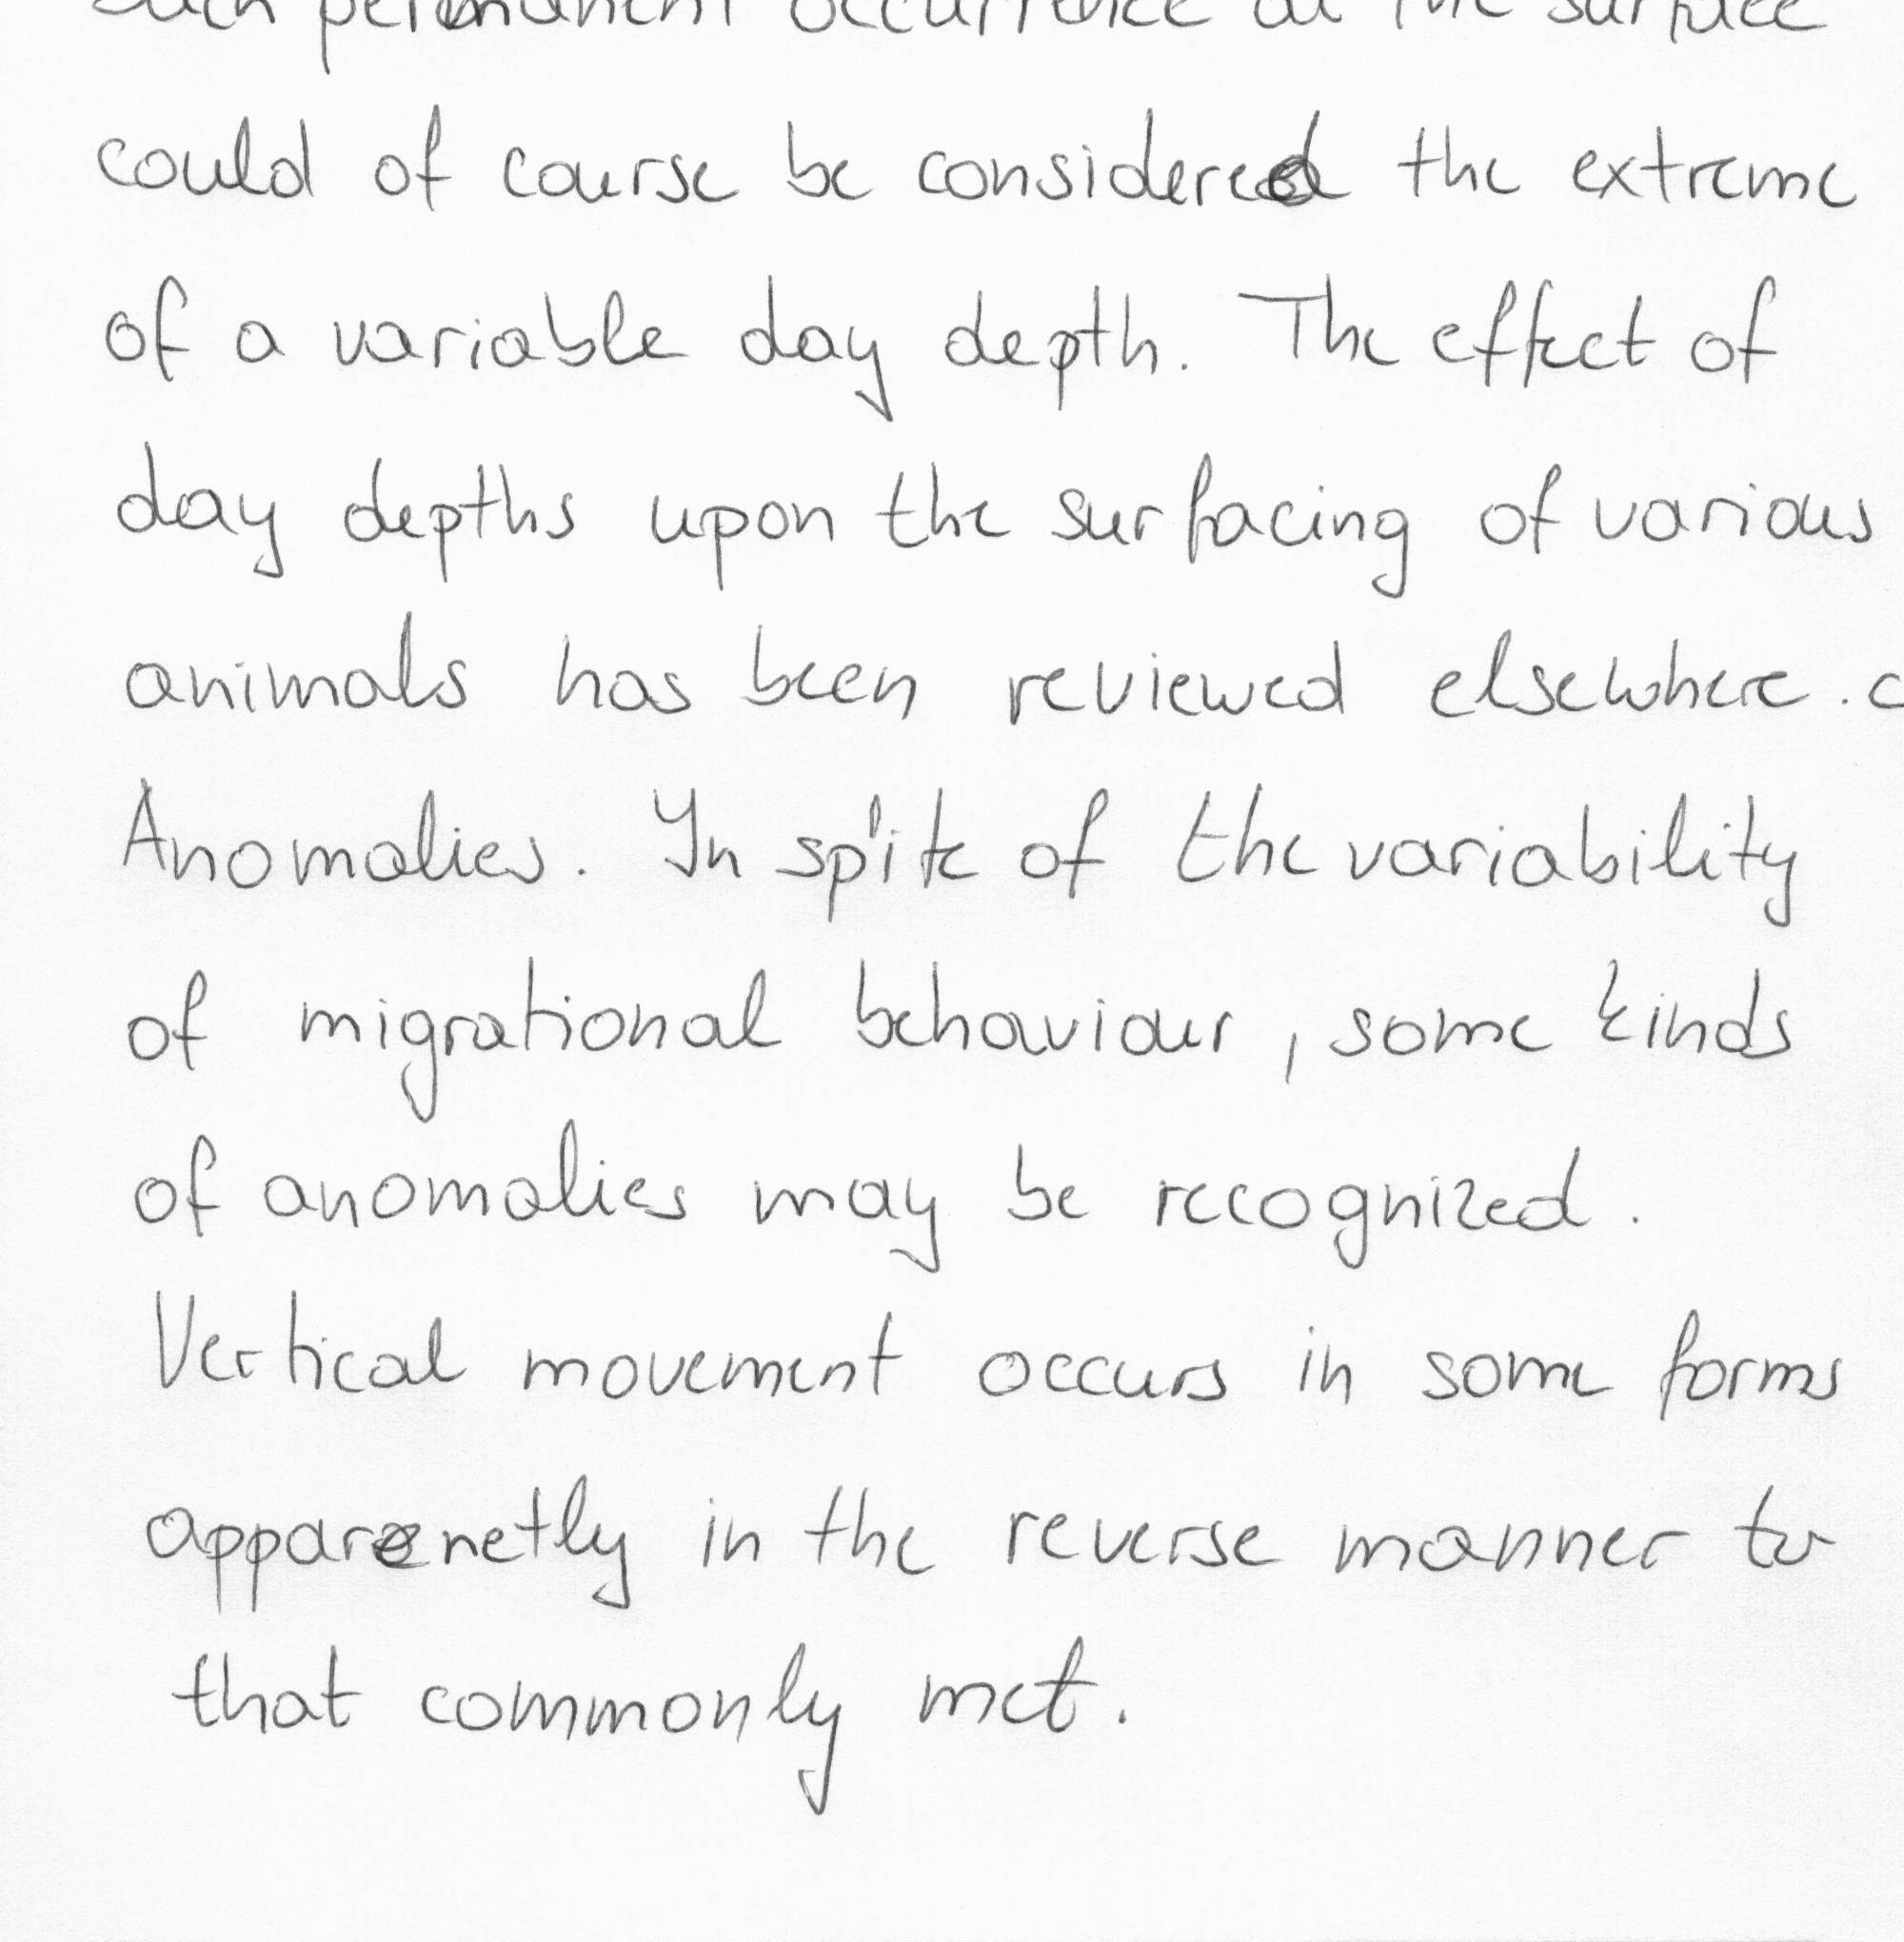 Such permanent occurrence at the surface
could of course be considered the extreme
of a variable day depth. The effect of
day depths upon the surfacing of various
animals has been reviewed elsewhere. c
Anomalies. In spite of the variability
of migrational behaviour, some kinds
of anomalies may be recognized.
Vertical movement occurs in some forms
apparenetly in the reverse manner to
that commonly met.